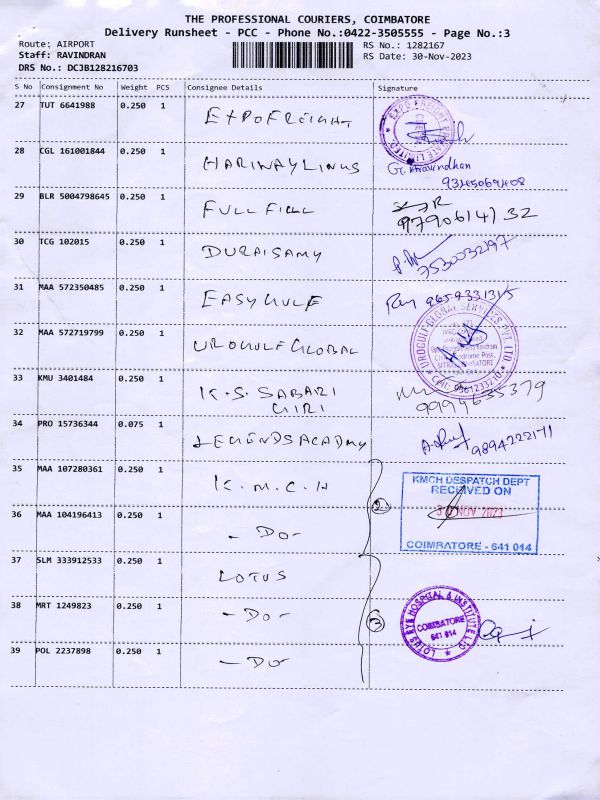 THE PROFESSIONAL COURIERS, COIMBATORE
Delivery Runsheet - PCC - Phone No.:0422-3505555 - Page No.:3
Route: AIRPORT RS No.: 1282167
Staff: RAVINDRAN RS Date: 30-Nov-2023
DRS No.: DCJB128216703
S No Consignment No Weight PCS Consignee Details Signature
27 TUT 6641988 0.250 1 EXPOFREIGHT
EXPO FREIGHT PRIVATE LIMITED
28 CGL 161001844 0.250 1 HARIWAYLINES
29 BLR 5004798645 0.250 1 FULLFILL
9790614132
30 TCG 102015 0.250 1 DURAISAMY
7530032197
31 MAA 572350485 0.250 1 EASYGULF
32 MAA 572719799 0.250 1 UROGULFGLOBAL
UROGULF GLOBAL SERVICES PVT. LTD.
33 KMU 3401484 0.250 1 K.S. SABARI
GIRI
9994635379
34 PRO 15736344 0.075 1 LEGENDSACADEMY
9894222171
35 MAA 107280361 0.250 1 K.M.C.H
KMCH DESPATCH DEPT
RECEIVED ON
30 NOV 2023
COIMBATORE - 641 014
36 MAA 104196413 0.250 1 - Do - 2
37 SLM 333912533 0.250 1 LOTUS
38 MRT 1249823 0.250 1 - Do - 3
LOTUS EYE HOSPITAL & INSTITUTE LTD
COIMBATORE
641 014
39 POL 2237898 0.250 1 - Do